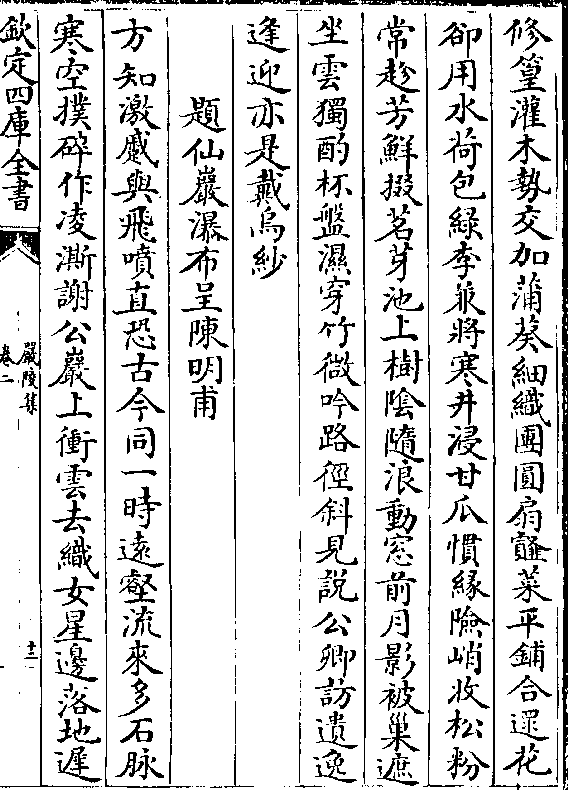 修篁灌木勢交加蒲葵細織團圓扇薤葉平鋪合遝花
卻用水荷包綠李兼將寒井浸甘瓜慣緣險峭收松粉
常趁芳鮮掇茗芽池上樹陰隨浪動窓前月影被巢遮
坐雲獨酌杯盤濕穿竹微吟路徑斜見說公卿訪遺逸
逢迎亦是戴烏紗
題仙巖瀑布呈陳明甫
方知激蹙與飛噴直恐古今同一時遠壑流來多石脉
寒空撲碎作凌澌謝公巖上衝雲去織女星邊落地遲
欽定四庫全書
嚴陵集
卷二
十二